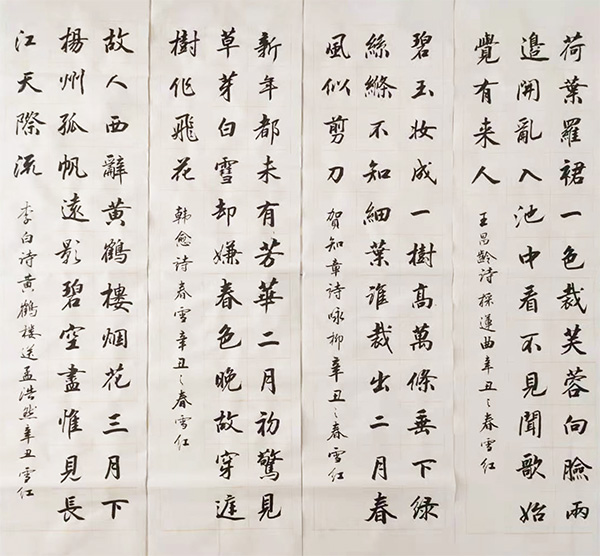 荷葉羅裙一色裁芙蓉向臉兩
邉開亂入池中看不見聞歌始
覺有来人
王昌齡诗採蓮曲辛丑之春雪红
碧玉妆成一樹高萬條垂下緑
絲縧不知細葉誰裁出二月春
風似剪刀
贺知章诗咏柳辛丑之春雪红
新年都未有芳華二月初驚見
草芽白雪却嫌春色晚故穿庭
樹作飛花
韩愈诗春雪辛丑之春雪红
故人西辭黄鶴樓烟花三月下
楊州孤帆遠影碧空盡惟見長
江天際流
李白诗黄鹤楼送孟浩然辛丑雪红